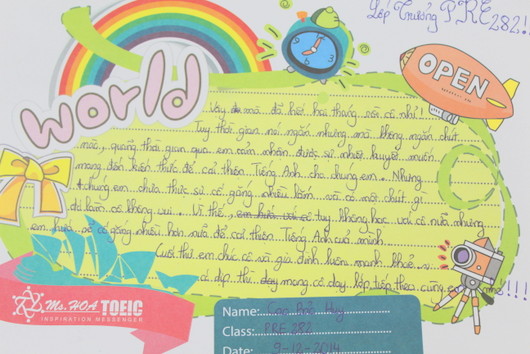 Lớp Trưởng PRE 282
world
OPEN
Vậy mà đã hết hai tháng rồi cô nhỉ!
Tuy thời gian nói ngắn nhưng mà không ngắn chút
nào, quãng thời gian qua em cảm nhận được sự nhiệt huyết muốn
mang đến kiến thức để cải thiện Tiếng Anh cho chúng em. Nhưng
chúng em chưa thực sự cố gắng nhiều lắm và có một chút gì
đó làm cô không vui. Vì thế, tuy không học với cô nữa nhưng
em hứa sẽ cố gắng nhiều hơn nữa để cải thiện Tiếng Anh của mình.
Cuối thư em chúc cô và gia đình luôn mạnh khoẻ
có dịp thì mong cô dạy lớp tiếp theo cùng em nhé!!!
Ms. HOA TOEIC
INSPIRATION MESSENGER
Name: Huy
Class: PRE 282
Date: 9-12-2014